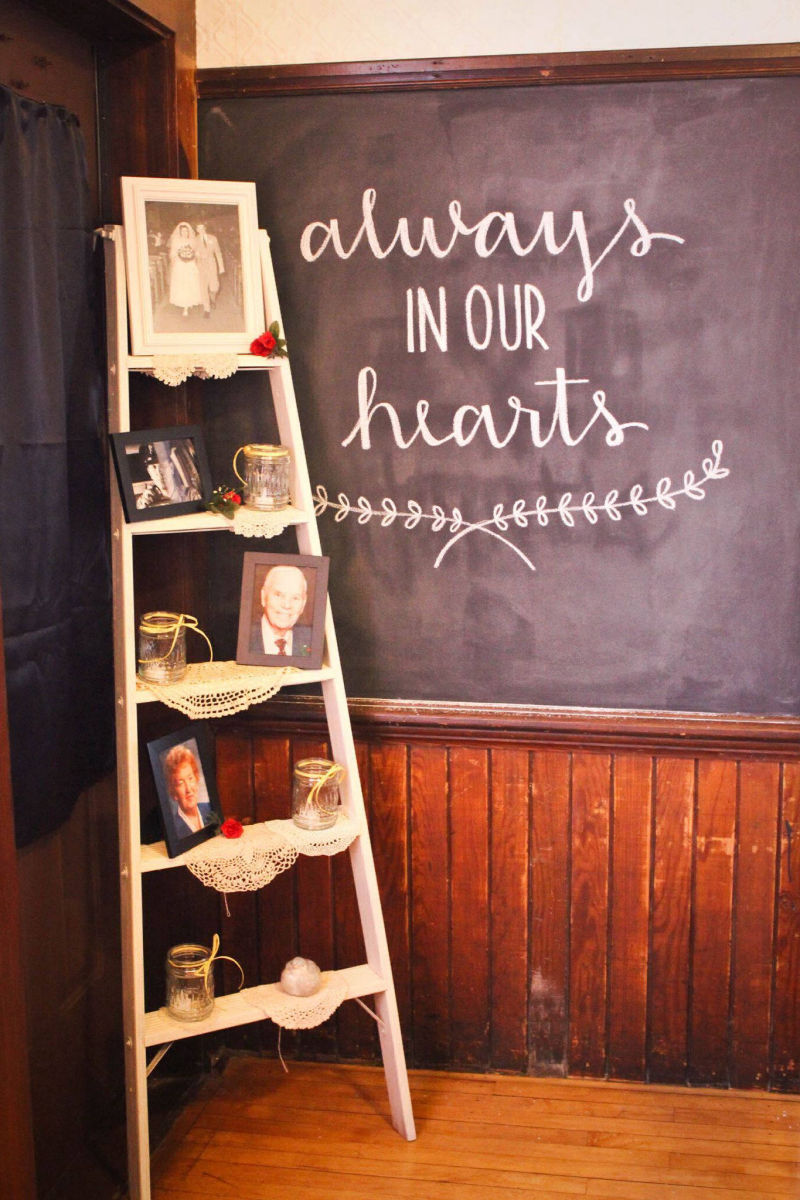 always
IN OUR
hearts